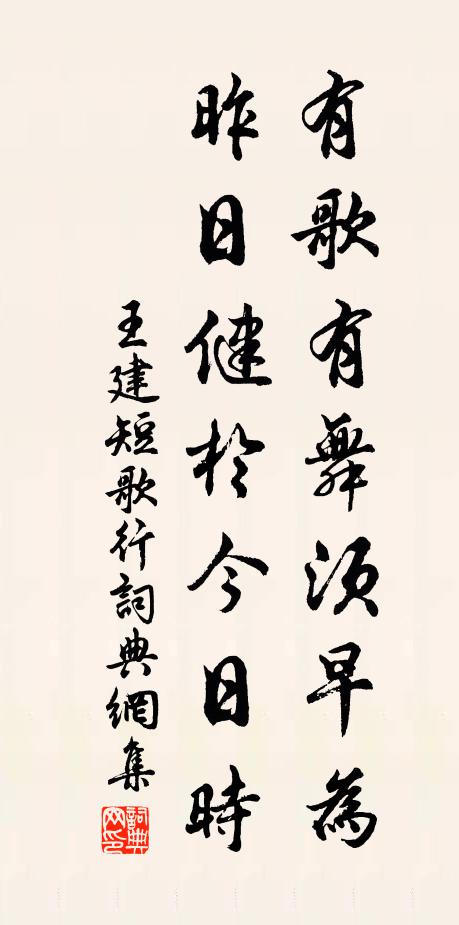 有歌有舞須早為
昨日健於今日時
王建短歌行詞典網集
詞典網印